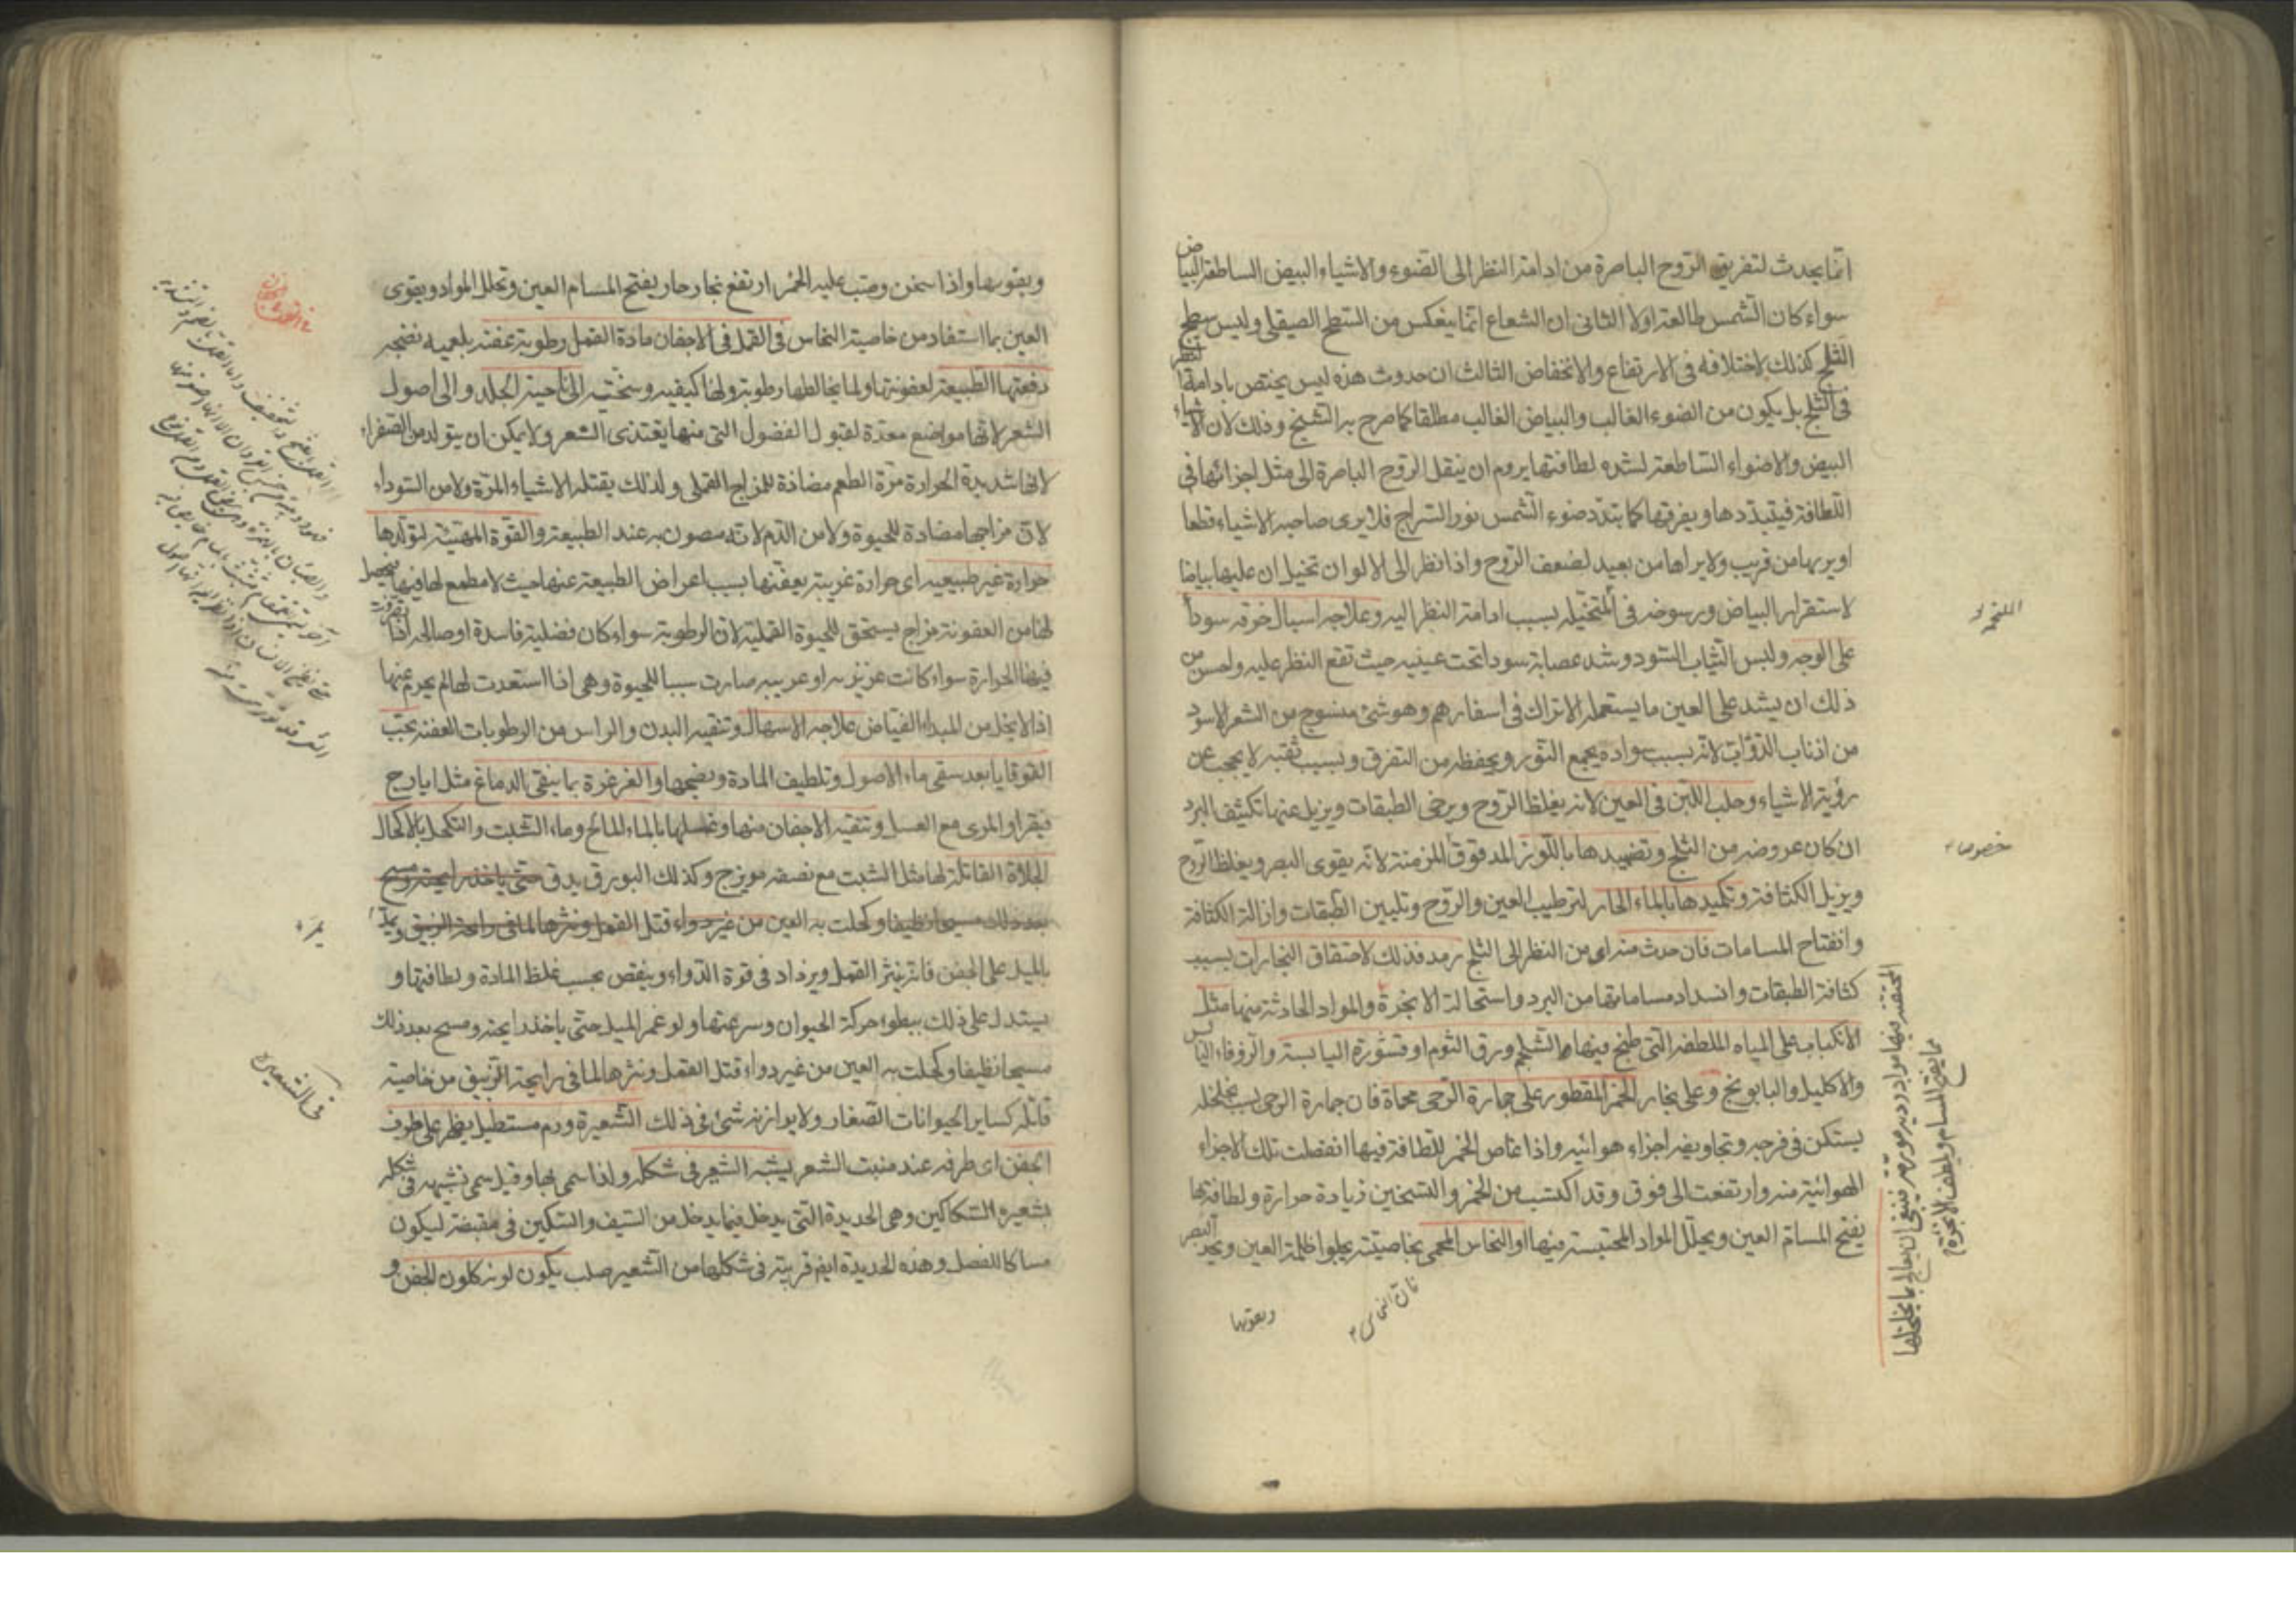 انما يحدث لتفريق الروح الباصرة من ادامة النظر الى الضوء والاشياء البيض الساطعة البياض
سواء كان الشمس طالعة اولا الثانى ان الشعاع انما ينعكس من السطح الصيقلى وليس سطح
الثلج كذلك لاختلافه فى الارتفاع والانخفاض الثالث ان حدوث هذه ليس يختص بادامة النظر
فى الثلج بل يكون من الضوء الغالب والبياض الغالب مطلقا كما صرح به الشيخ وذلك لان الاشياء
البيض والاضواء الساطعة لشده لطافتها يروم ان ينقل الروح الباصرة الى مثل اجزائها فى
اللطافة فيتبددها ويفرقها كما يتدد ضوء الشمس نور السراج فلا يرى صاحبه الاشياء قطعا
او يريها من قريب ولا يراها من بعيد لضعف الروح واذا نظر الى الالوان تخيل ان عليها بياضا
لاستقرار البياض ورسوخه فى المتخيله بسبب ادامة النظر اليه وعلاجه اسبال خرقه سودا
على الوجه ولبس الثياب السود وشد عصابة سودا تحت عينيه حيث تقع النظر عليه واحسن من
ذلك ان يشد على العين ما يستعمله الاتراك فى اسفارهم وهو شئ منسوج من الشعر الاسود
من اذناب الدواب لانه بسبب سواده يجمع النور ويحفظه من التفرق وبسبب ثقبه لا يحجب عن
رؤية الاشياء وحلب اللبن فى العين لانه يغلظ الروح ويرخى الطبقات ويزيل عنها تكثيف البرد
ان كان عروضه من الثلج وتضميدها باللوز المدقوق المزمنة لانه يقوى البصر ويغلظ الروح
ويزيل الكثافة وتكميدها بالماء الحار لترطيب العين والروح وتليين الطبقات وازالة الكثافة
وانفتاح المسامات فان حدث منه اى من النظر الى الثلج رمد فذلك لاحتقاق البخارات بسبب
كثافة الطبقات وانسداد مساماتها من البرد واستحالة الابخرة والمواد الحادثة منها مثل
الانكباب على المياه الملطفه التى طبخ فيها الشلجم ورق الثوم او قشوره اليابسة والزوفاء اليابس
والاكليل والبابونج وعلى بخار الخمر المقطور على حجارة الرحى محماة فان حجارة الرحى بسبب تخلخله
يستكن فى فرجه وتجاويفه اجزاء هوائيه واذا غاص الخمر للطافة فيها انفصلت تلك الاجزاء
الهوائية منه وارتفعت الى فوق وقد اكتسب من الخمر والتسخين زيادة حرارة ولطافة
يفتح المسام العين ويحلل المواد المحتبسة فيها او النحاس المحمى بخاصيته يجلوا ظلمة العين ويحد البصر
خصوصا
المحتقنه فيها مواد رديه مورمة فينبغى ان يعالج بما يحللها
مما يفتح المسام ويلطف الابخرة
فان النحاس
ويقويها
ويقويها واذا سخن وصب عليه الخمر ارتفع بخار حار يفتح المسام العين وتحلل المواد ويقوى
العين بما استفاد من خاصية النحاس فى القمل فى الاجفان مادة القمل رطوبة عفنه بلغميه نضجه
دفعتها الطبيعة لعفونتها ولما يخالطها رطوبة ولها كيفيه وسختيه الى ناحية الجلد والى اصول
الشعر لانها مواضع معدة لقبول الفضول التى منها يغتذى الشعر ولا يمكن ان يتولد من الصفراء
لانها شديدة الحرارة مرة الطعم مضادة للمزاج القملى ولذلك يقتله الاشياء المرة ولا من السوداء
لان مزاجها مضادة للحيوة ولا من الدم لانه مصون به عند الطبيعة والقوة المهيئة لتولدها
حرارة غير طبيعيه اى حرارة غريبة يعفنها بسبب اعراض الطبيعة عنها حيث لا مطمع لها فيها فيحصل
لها من العفونة مزاج يستحق للحيوة القملية لان الرطوبة سواء كان فضلية فاسدة او صالحه اذا
فيها الحرارة سواء كانت غريزيه او غريبه صارت سببا للحيوة وهى اذا استعدت لها لم يحرم عنها
اذ لا بخل من المبداء الفياض علاجه الاسهال وتنقيه البدن والراس من الرطوبات العفنه بحب
القوقايا بعد سقى ماء الاصول وتلطيف المادة ونضجها والغرغرة بما ينقى الدماغ مثل ايارج
فيقرا والمرى مع العسل وتنقيه الاجفان منها وغسلها بالماء المالح وماء الشبت والتكحل بالاكحال
الجلاة القاتلة لها مثل الشبت مع نصفه مويزج وكذلك البورق يدق حتى ياخذ رايحته ومسح
بعد ذلك مسحا نظيفا وكحلت به العين من غير دواء قتل القمل ونثرها لما فى رائحة الزيبق ويمد
بالميل على الجفن فانه ينثر القمل ويزداد فى قوة الدواء وينقص بحسب غلظ المادة ولطافتها و
يستدل على ذلك ببطوء حركة الحيوان وسرعتها ولو غمر الميل حتى ياخذ رايحته ومسح بعد ذلك
مسحا نظيفا وكحلت به العين من غير دواء قتل القمل ونثرها لما فى رايحة الزيبق من خاصية
قاتله كساير الحيوانات الصغار ولا يدازنه شئ فى ذلك الشعيرة ورم مستطيل يظهر على طرف
الجفن اى طرفه عند منبت الشعر يشبه الشعير فى شكله ولذا سمى بها وقيل سمى تشبيهه فى شكله
بشعيره السكاكين وهى الحديدة التى يدخل فيما يدخل من السيف والسكين فى مقبضه ليكون
مساكا للفصل وهذه الحديدة ايضا قريبة فى شكلها من الشعير صلب يكون لونه كلون الجفن و
يمر
فى الشعيرة